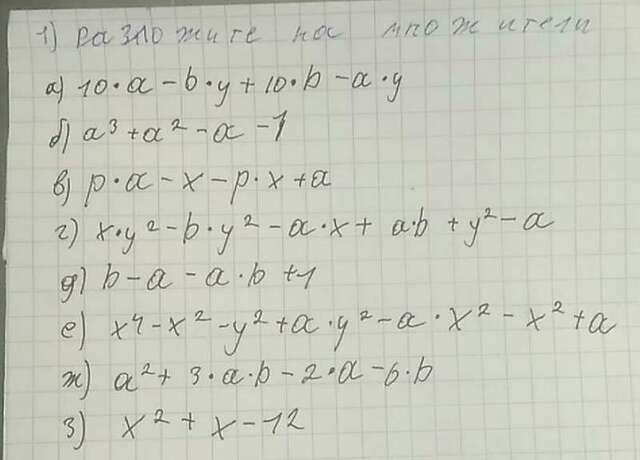 1) Разложите на множители
а) 10·a-b·y+10·b-a·y
б) a³+a²-a-1
в) p·a-x-p·x+a
г) x·y²-b·y²-a·x+a·b+y²-a
д) b-a-a·b+1
е) x⁴-x²-y²+a·y²-a·x²-x²+a
ж) a²+3·a·b-2·a-6·b
з) x²+x-12